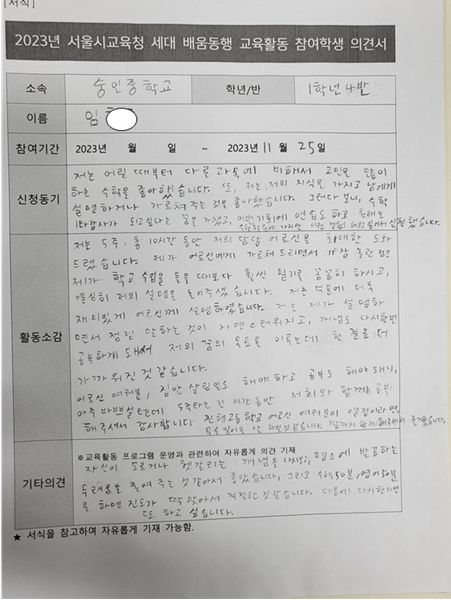 [서식]
2023년 서울시교육청 세대 배움동행 교육활동 참여학생 의견서
소속 숭인중학교 학년/반 1학년 4반
이름 임
참여기간 2023년 월 일 ~ 2023년 11월 25일
신청동기
저는 어릴 때부터 다른 과목에 비해서 고민을 많이
하는 수학을 좋아했습니다. 또, 저는 저의 지식을 가지고 남에게
설명하거나 가르쳐 주는 것을 좋아했습니다. 그러다 보니, 수학
강사가 되고싶다는 꿈을 가졌고, 이번 기회에 연습도 하고
신청했습니다.
활동소감
저는 5주, 총 10시간 동안 저의 담당 어르신을 최대한 도와
드렸습니다. 제가 어르신에게 가르쳐 드리면서 가장 놀란 점은
제가 학교 수업을 들을 때보다 훨씬 필기를 꼼꼼히 하시고,
열심히 저의 설명을 들어주셨습니다. 저는 덕분에 더욱
재미있게 어르신께 설명하였습니다. 저는 제가 설명하
면서 점점 말하는 것이 자연스러워지고, 개념도 다시한번
공부하게 돼서 저의 꿈의 목표로 이루는데 한 걸음 더
가까워진 것 같습니다.
어르신 여러분, 집안 살림일도 해야하고 공부도 해야되니,
아주 바쁘실텐데 5주라는 긴 시간동안 저희와 함께 공부
해주셔서 감사합니다. 진형고등학교 어르신 여러분의 열정이라면,
기타의견
※교육활동 프로그램 운영과 관련하여 자유롭게 의견 기재
자신이 모르거나 헷갈리는 개념을 평소에 발표하는
두려움을 줄여 주는 것 같아서 좋았습니다. 그리고 수학 50분, 영어 50분
로 하면 진도가 딱 맞아서 적절한 것 같습니다. 다음에 다시한다면
또 하고 싶습니다.
★ 서식을 참고하여 자유롭게 기재 가능함.